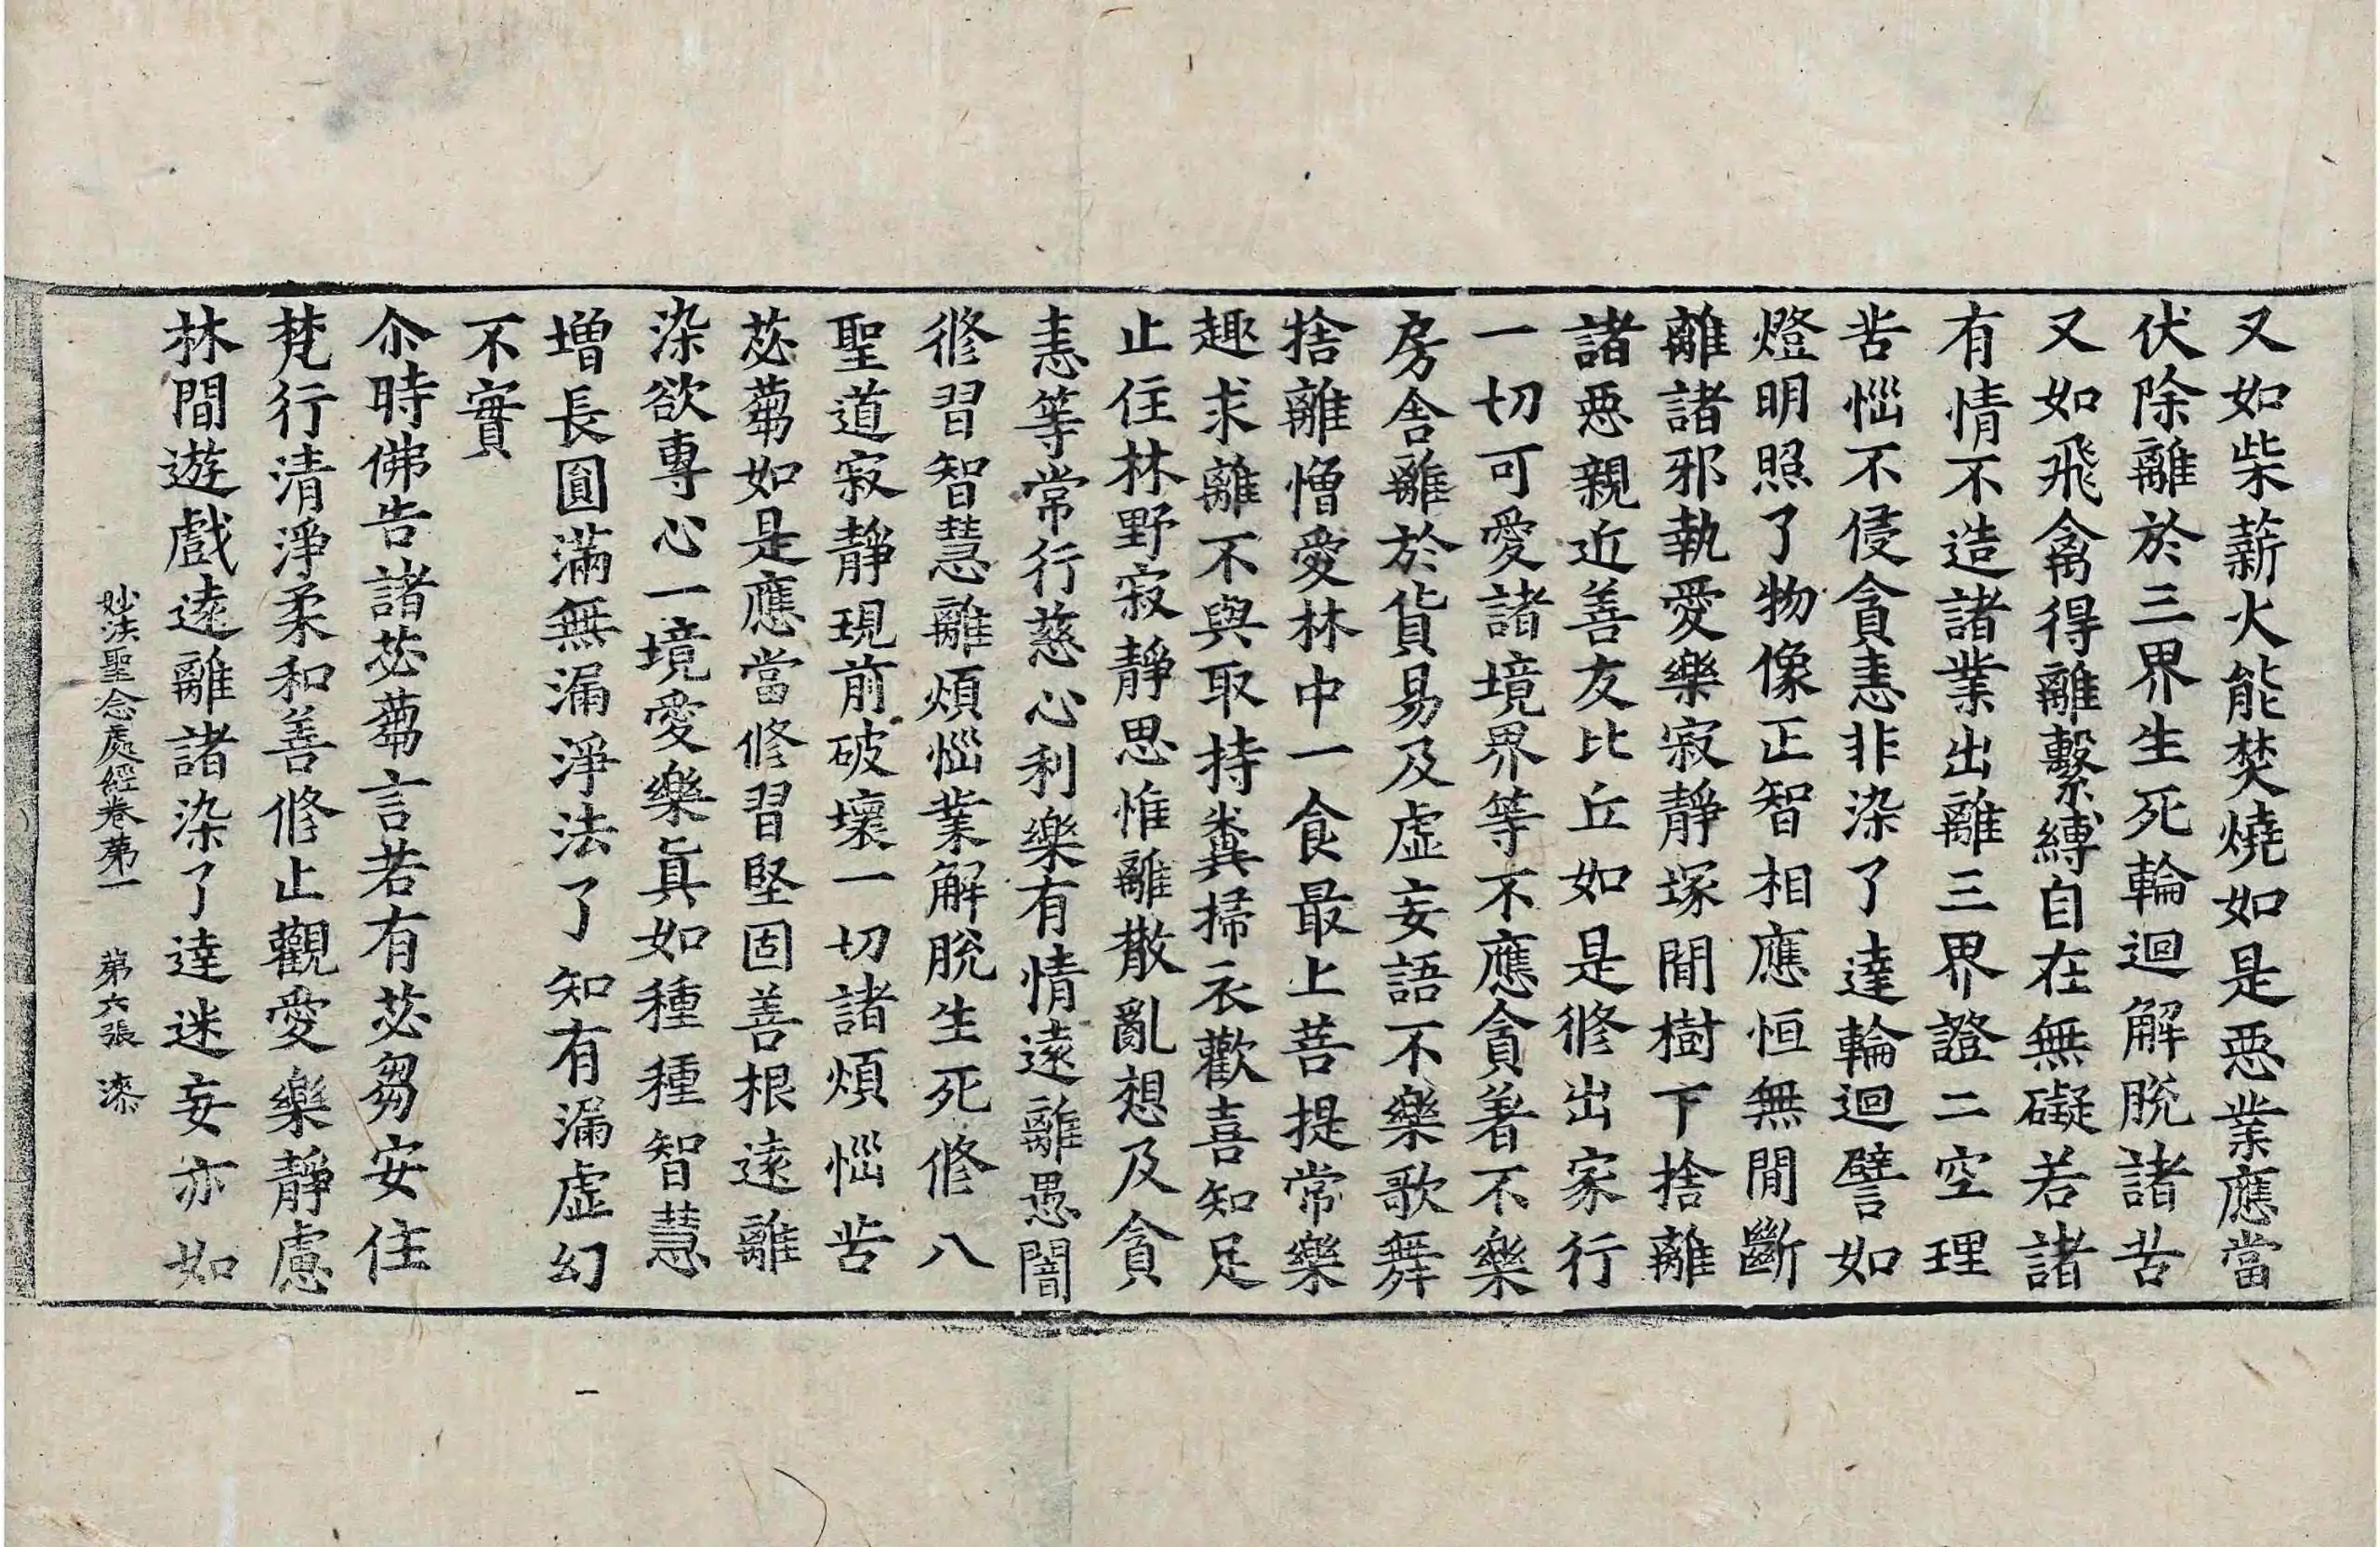 又如柴薪火能焚燒如是惡業應當
伏除離於三界生死輪迴解脫諸苦
又如飛禽得離繫縛自在無礙若諸
有情不造諸業出離三界證二空理
苦惱不侵貪恚非染了達輪迴譬如
燈明照了物像正智相應恒無間斷
離諸邪執愛樂寂靜塚間樹下捨離
諸惡親近善友比丘如是修出家行
一切可愛諸境界等不應貪著不樂
房舍離於貨易及虛妄語不樂歌舞
捨離憎愛林中一食最上菩提常樂
趣求離不與取持糞掃衣歡喜知足
止住林野寂靜思惟離散亂想及貪
恚等常行慈心利樂有情遠離愚闇
修習智慧離煩惱業解脫生死修八
聖道寂靜現前破壞一切諸煩惱苦
苾蒭如是應當修習堅固善根遠離
染欲專心一境愛樂眞如種種智慧
增長圓滿無漏淨法了知有漏虛幻
不實
尒時佛告諸苾蒭言若有苾芻安住
梵行清淨柔和善修止觀愛樂靜慮
林間遊戲遠離諸染了達迷妄亦如
妙法聖念處經卷第一　第六張　漆